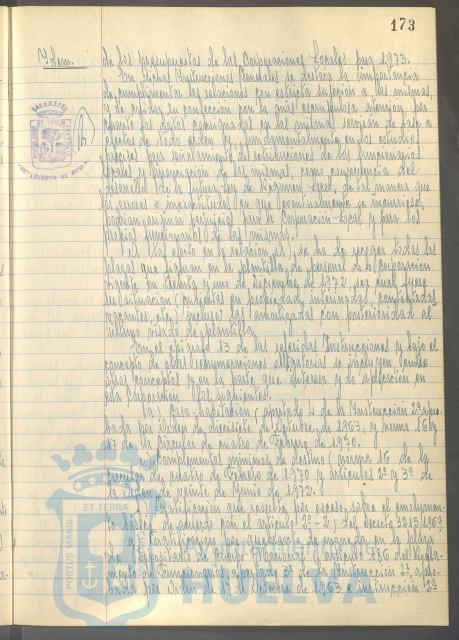 173
Idem.
de los presupuestos de las Corporaciones Locales para 1973.
En dichas Instrucciones Generales se destaca la importancia
de cumplimentar las relaciones con estricta sujeción a las mismas,
y de cuidar su confección con la más escrupulosa atención, por
cuanto los datos consignados en las mismas servirán de base a
efectos de todo orden y, fundamentalmente en los estudios
precisos para señalamiento de retribuciones de los funcionarios
locales y financiación de las mismas, como consecuencia del
desarrollo de la futura Ley de Régimen Local, de tal manera que
los errores o inexactitudes en que eventualmente se incurriese,
podrían originar perjuicios para la Corporación Local y para los
propios funcionarios de las mismas.
A tal efecto en la relación 1), se ha de recoger todas las
plazas que figuran en la plantilla de personal de la Corporación
vigente en treinta y uno de diciembre de 1972, sea cual fuere
su situación (cubiertas en propiedad, interinadas, contratadas,
vacantes, etc.) incluso las amortizadas con posterioridad al
último visado de plantilla.
En el epígrafe 13 de las referidas Instrucciones y bajo el
concepto de otras remuneraciones obligatorias se incluyen, dentro
otros conceptos y en la parte que interesa y de aplicación en
esta Corporación los siguientes:
a) Casa-habitación (apartado 4 de la Instrucción 2ª apro-
bada por Orden de dieciseis de Octubre de 1963, y norma 16 y
17 de la Circular de cuatro de Febrero de 1970.
Complementos mínimos de destino (norma 16 de la
Circular de cuatro de Febrero de 1970 y artículos 2º y 3º de
la Orden de veinte de Junio de 1972.
Gratificación que resulte por exceso sobre el emolumen-
to básico de acuerdo con el artículo 2º-2) del Decreto 3215/1969
Gratificación por quebranto de moneda en la plaza
de Depositario de Fondos Nacional artículo 186 del Regla-
mento de Funcionarios, apartado 7º de la Instrucción 2ª, apro-
bada por Orden de de Octubre de 1963 e instrucción 2ª
PORTUS MARIS
ET TERRAE
HUELVA